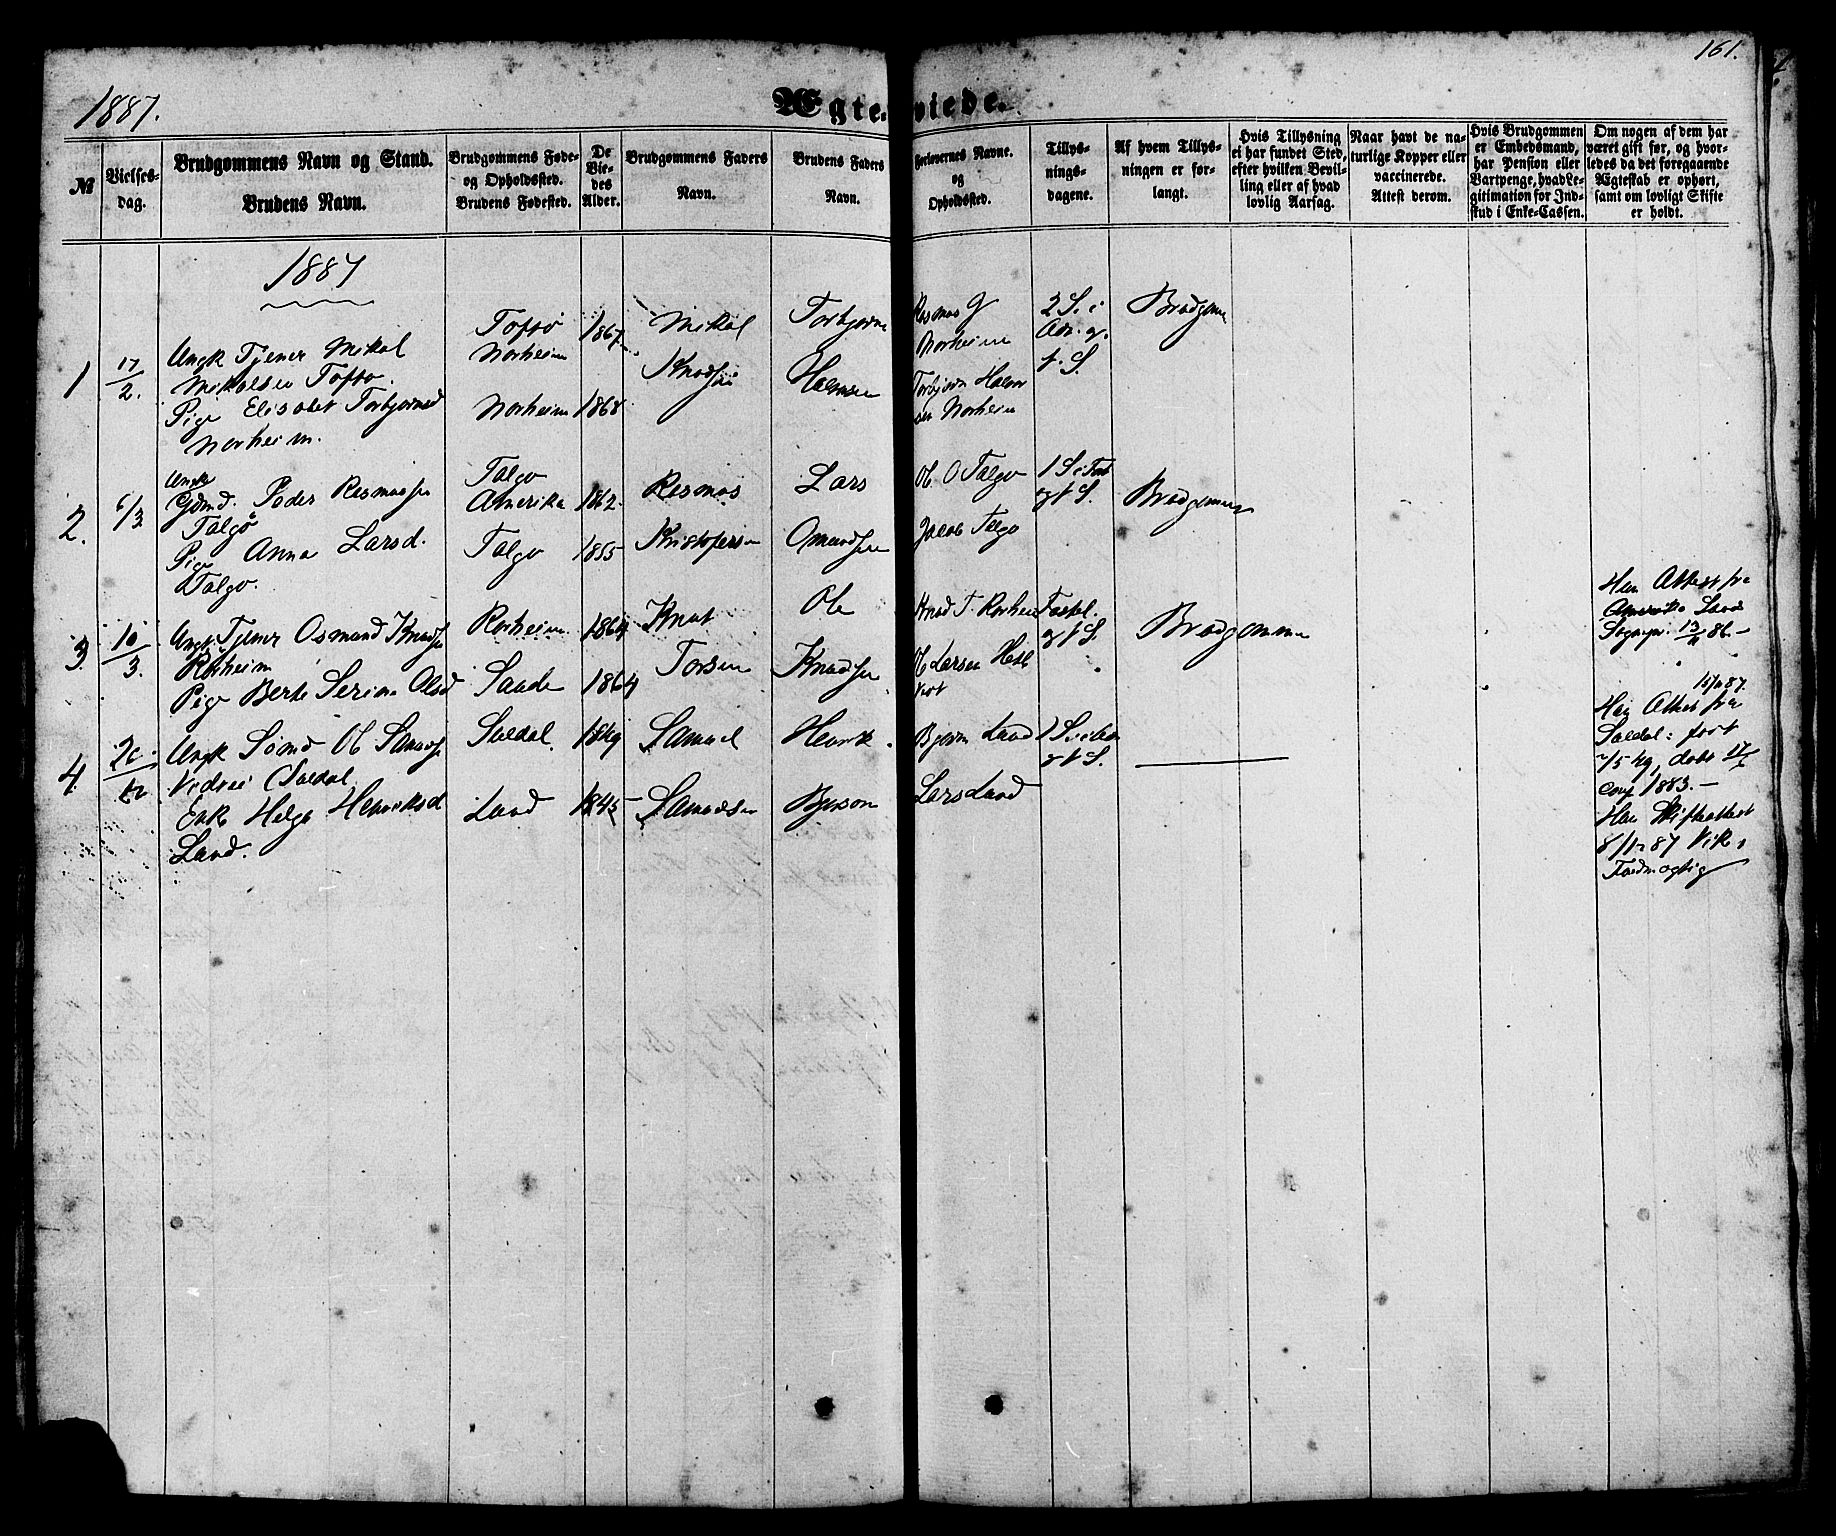 161.
1887.
Ægteviede.
№
Vielses-
dag.
Brudgommens Navn og Stand.
Brudens Navn.
Brudgommens Føde-
og Opholdssted.
Brudens Fødested.
De
Vie-
des
Alder.
Brudgommens Faders
Navn.
Brudens Faders
Navn.
Forlovernes Navne.
og
Opholdssted.
Tillys-
nings-
dagene.
Af hvem Tillys-
ningen er for-
langt.
Hvis Tillysning
ei har fundet Sted,
efter hvilken Bevil-
ling eller af hvad
lovlig Aarsag.
Naar havt de na-
turlige Kopper eller
vaccinerede.
Attest derom.
Hvis Brudgommen
er Embedsmand,
har Pension eller
Vartpenge, hvad Le-
gitimation for Ind-
skud i Enke-Cassen.
Om nogen af dem har
været gift før, og hvor-
ledes da det foregaaende
Ægteskab er ophørt,
samt om lovligt Skifte
er holdt.
1887
1
17/2.
Ungk Tjener Mikal
Mikalsen Toftø.
Pige Elisabet Torbjørnsd
Norheim.
Toftø
Norheim
Norheim
1867
1868
Mikal
Knudsen
Torbjørn
Halvorsen
Rasmus G
Norheim
Torbjørn Halvor
sen Norheim
2 S. i
Adv. g.
f. S.
Brudgom
2.
6/3
Ungk
Gdmd. Peder Rasmussen
Talgø
Pige Anna Larsd.
Talgø.
Talgø
Amerika
Talgø
1862
1855
Rasmus
Kristofersen
Lars
Omundsen
Ole O Talgø
Jacob Talgø
1 S. i Fast
g f S.
Brudgommen
3.
10/3.
Ungk Tjener Osmund Knudsen
Rørheim
Pige Berte Serine Olsd
Rørheim
Sande
1864
1864
Knut
Torsen
Ole
Knudsen
Knud T. Rørheim
Ole Larsen Hest
Fastel.
g f S.
Brudgomme
Han Attest fra
Amerika
Sognepr. 86.
4.
Ungk Sømd Ole Samuels
Suldal
Enke Helga Henriksd
Land.
Suldal.
Land
1849
1845
Samuel
Samuelsen
Henrik
Bjørson
Bjørn Land
Lars Land
g f S.
87.
Han Attest fra
Suldal: født
døbt
conf 1883.
Hun Skifteattest
87 Vik,
Fuldmægtig